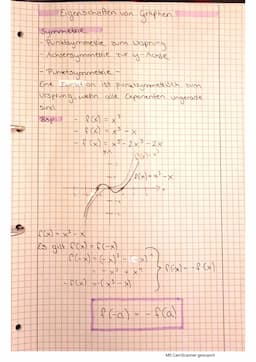 Eigenschaften von Graphen
Symmetrie
- Punktsymmetrie zum Ursprung
- Achsensymmetrie zur y-Achse
- Punktsymmetrie -
Eine Funktion ist punktsymmetrisch zum
Ursprung, wenn alle Exponenten ungerade
sind
Bsp:
- f(x) = x³
- f(x) = x³ - x
- f(x) = x⁵ - 2x³ - 2x
f(x) = x³ - x
f(x) = x³ - x
Es gilt f(x) = f(-x)
f(-x) = -f(x)
f(-a) = -f(a)
Mit CamScanner gescannt